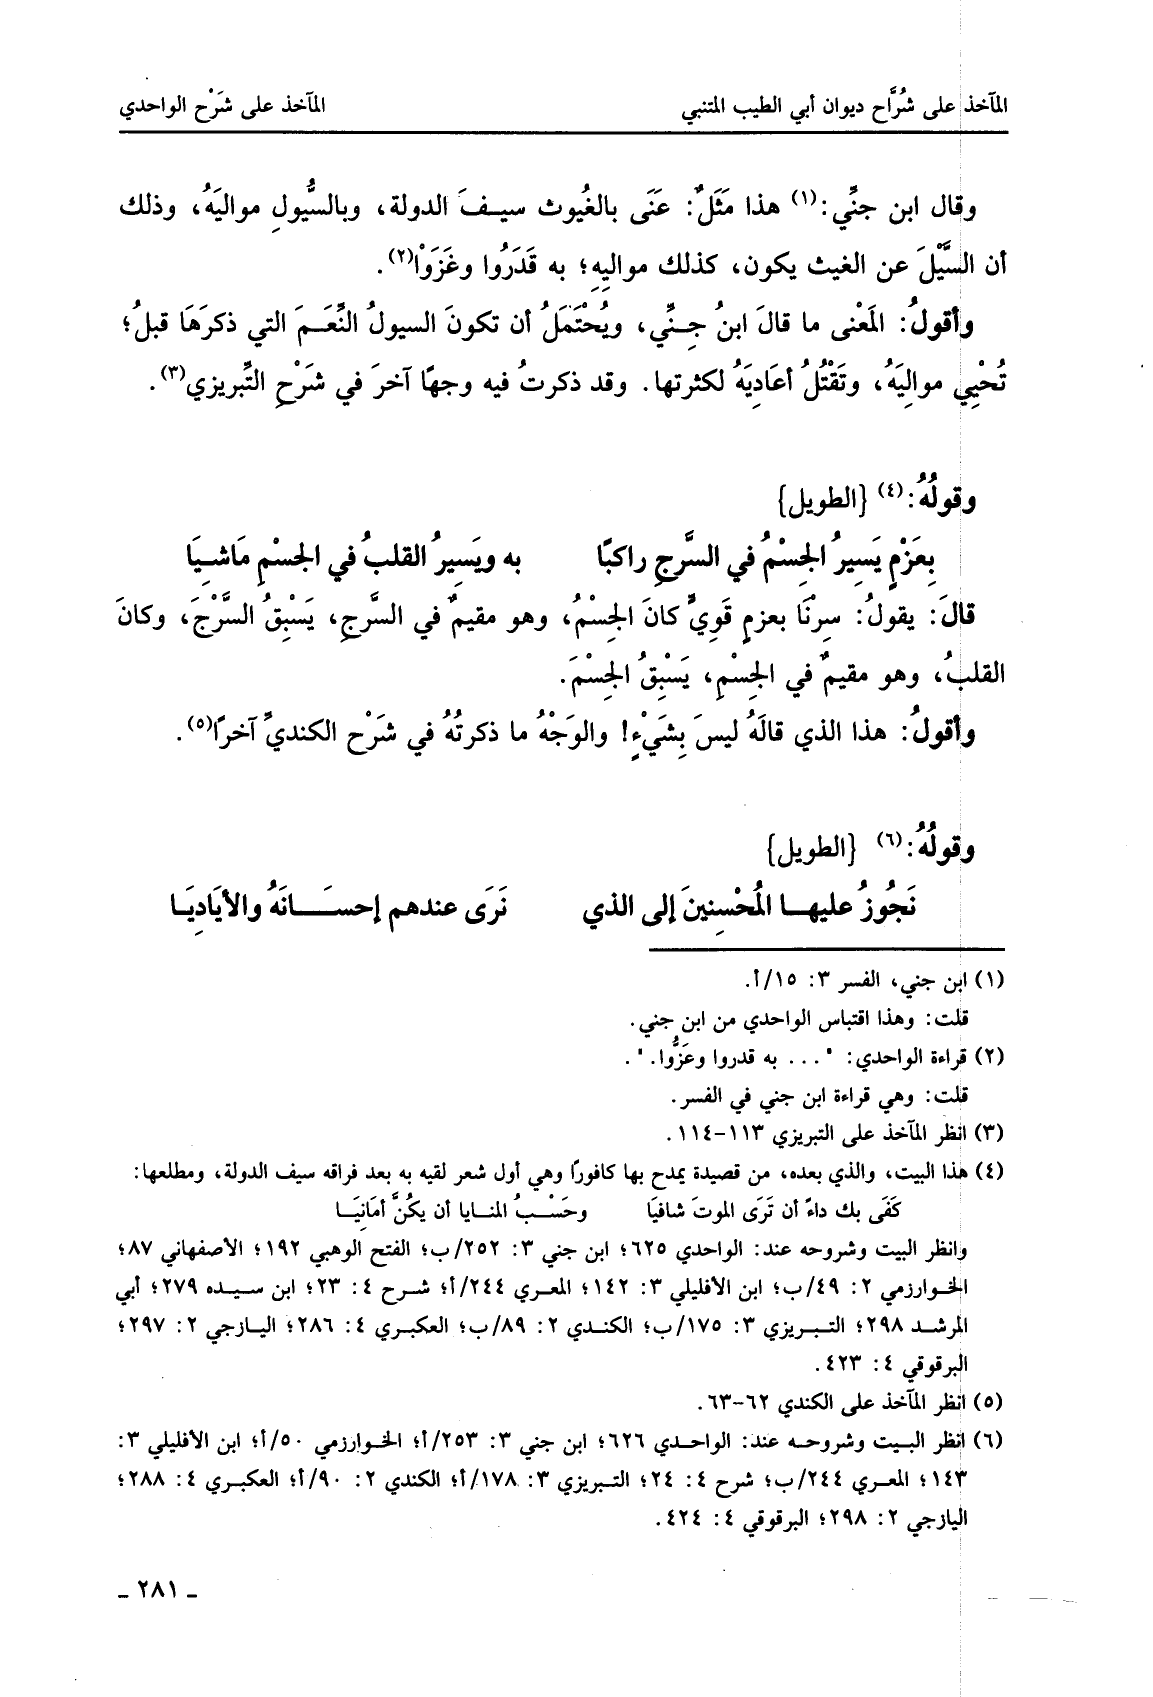 المآخذ على شُرَّاح ديوان أبي الطيب المتنبي المآخذ على شَرْح الواحدي
وقال ابن جنِّي:(١) هذا مَثَلٌ: عَنَى بالغُيوث سيفَ الدولة، وبالسُّيولِ مواليَهُ، وذلك
أن السَّيْلَ عن الغيث يكون، كذلك مواليهِ؛ به قَدَرُوا وغَزَوْا(٢).
وأقولُ: المَعْنى ما قالَ ابنُ جِنِّي، ويُحْتَمَلُ أن تكونَ السيولُ النِّعَمَ التي ذكرَهَا قبلُ؛
تُحْيِي مواليَهُ، وتَقْتُلُ أعَاديَهُ لكثرتها. وقد ذكرتُ فيه وجهًا آخرَ في شَرْحِ التِّبريزي(٣).
وقولُهُ:(٤) {الطويل}
بِعَزْمٍ يَسِيرُ الجِسْمُ في السَّرجِ راكبًا به ويَسِيرُ القلبُ في الجسْمِ مَاشِيَا
قالَ: يقولُ: سِرْنَا بعزمٍ قَوِيٍّ كانَ الجِسْمُ، وهو مقيمٌ في السَّرجِ، يَسْبِقُ السَّرْجَ، وكانَ
القلبُ، وهو مقيمٌ في الجِسْمِ، يَسْبِقُ الجِسْمَ.
وأقولُ: هذا الذي قالَهُ ليسَ بِشَيْءٍ! والوَجْهُ ما ذكرتُهُ في شَرْح الكنديِّ آخرًا(٥).
وقولُهُ:(٦) {الطويل}
نَجُوزُ عليها المُحْسِنِينَ إلى الذي نَرَى عندهم إحسَانَهُ والأيَاديَا
(١) ابن جني، الفسر ٣: ١٥/أ.
قلت: وهذا اقتباس الواحدي من ابن جني.
(٢) قراءة الواحدي: "... به قدروا وعَزُّوا.".
قلت: وهي قراءة ابن جني في الفسر.
(٣) انظر المآخذ على التبريزي ١١٣-١١٤.
(٤) هذا البيت، والذي بعده، من قصيدة يمدح بها كافورًا وهي أول شعر لقيه به بعد فراقه سيف الدولة، ومطلعها:
كَفَى بك داءً أن تَرَى الموتَ شافيَا وحَسْبُ المنايا أن يكُنَّ أمَانِيَا
وانظر البيت وشروحه عند: الواحدي ٦٢٥؛ ابن جني ٣: ٢٥٢/ب؛ الفتح الوهبي ١٩٢؛ الأصفهاني ٨٧؛
الخوارزمي ٢: ٤٩/ب؛ ابن الأفليلي ٣: ١٤٢؛ المعري ٢٤٤/أ؛ شرح ٤: ٢٣؛ ابن سيده ٢٧٩؛ أبي
المرشد ٢٩٨؛ التبريزي ٣: ١٧٥/ب؛ الكندي ٢: ٨٩/ب؛ العكبري ٤: ٢٨٦؛ اليازجي ٢: ٢٩٧؛
البرقوقي ٤: ٤٢٣.
(٥) انظر المآخذ على الكندي ٦٢-٦٣.
(٦) انظر البيت وشروحه عند: الواحدي ٦٢٦؛ ابن جني ٣: ٢٥٣/أ؛ الخوارزمي ٥٠/أ؛ ابن الأفليلي ٣:
١٤٣؛ المعري ٢٤٤/ب؛ شرح ٤: ٢٤؛ التبريزي ٣: ١٧٨/أ؛ الكندي ٢: ٩٠/أ؛ العكبري ٤: ٢٨٨؛
اليازجي ٢: ٢٩٨؛ البرقوقي ٤: ٤٢٤.
ـ ٢٨١ ـ